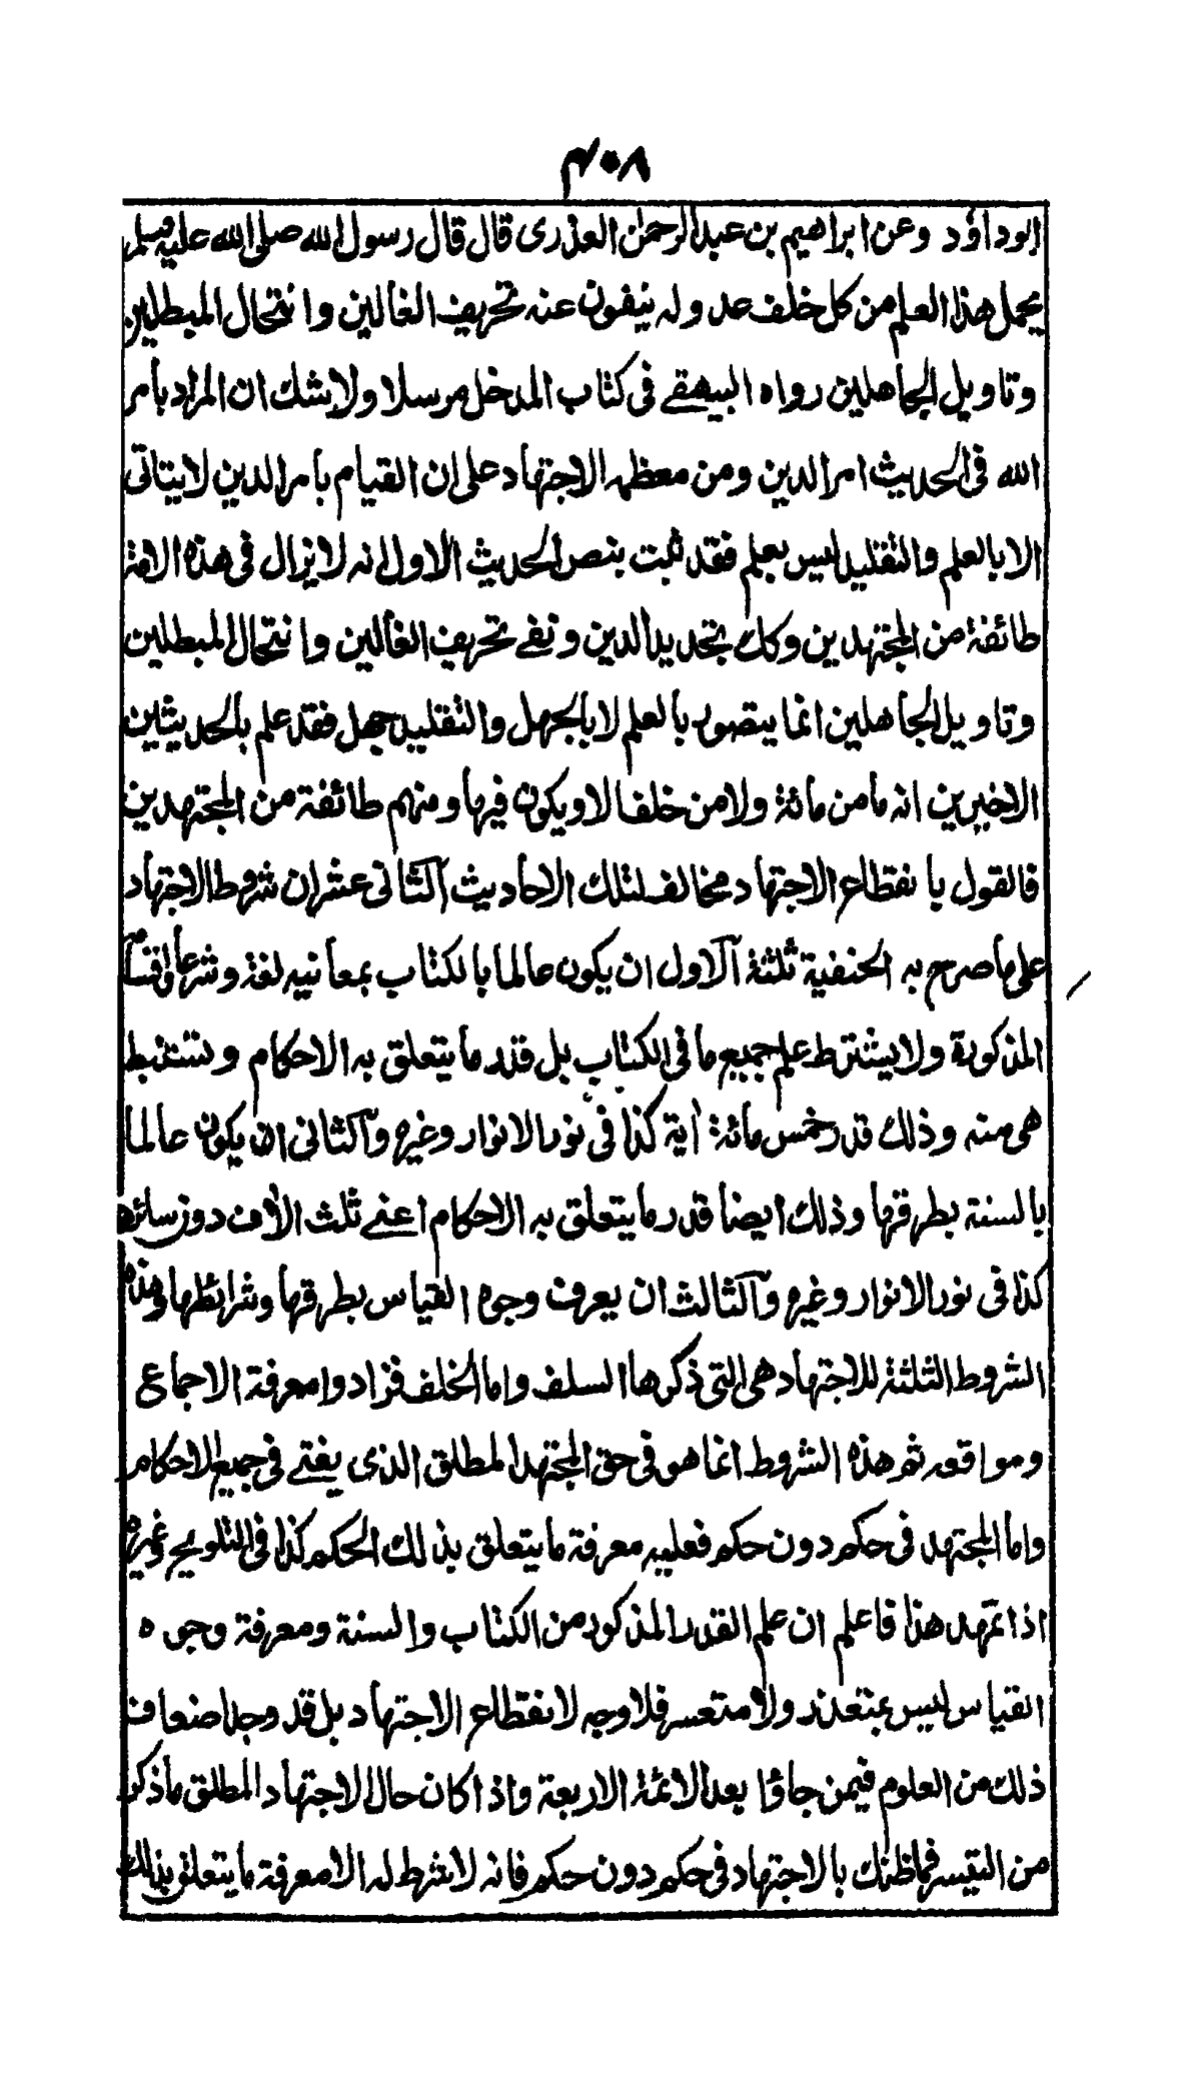 ۴۰۸
ابوداؤد وعن ابراهيم بن عبدالرحمن العذرى قال قال رسول الله صلى الله عليه وسلم
يحمل هذا العلم من كل خلف عدوله ينفون عنه تحريف الغالين وانتحال المبطلين
وتاويل الجاهلين رواه البيهقے فى كتاب المدخل مرسلا ولا شك ان المراد بامر
الله فى الحديث امر الدين ومن معظمه الاجتهاد على ان القيام بامر الدين لا يتاتى
الا بالعلم والتقليد ليس بعلم فقد ثبت بنص الحديث الاول انه لا يزال فى هذه الامة
طائفة من المجتهدين وكك تجديد الدين ونفے تحريف الغالين وانتحال المبطلين
وتاويل الجاهلين انما يتصور بالعلم لا بالجهل والتقليد جهل فقد علم بالحديثين
الاخيرين انه ما من مائة ولا من خلف الا ويكون فيها ومنهم طائفة من المجتهدين
فالقول بانقطاع الاجتهاد مخالف لتلك الاحاديث آلثانى عشر ان شروط الاجتهاد
على ما صرح به الحنفية ثلثة آلاول ان يكون عالما بالكتاب بمعانيه لغة وشرعا واقسامه
المذكورة ولا يشترط علم جميع ما فى الكتاب بل قدر ما يتعلق به الاحكام وتستنبط
هى منه وذلك قدر خمس مائة اٰية كذا فى نور الانوار وغيره وآلثانى ان يكون عالما
بالسنة بطرقها وذلك ايضا قدر ما يتعلق به الاحكام اعنے ثلث الاٰف دون سائرها
كذا فى نور الانوار وغيره وآلثالث ان يعرف وجوه القياس بطرقها وشرائطها وهذه
الشروط الثلثة للاجتهاد هى التى ذكرها السلف واما الخلف فزادوا معرفة الاجماع
ومواقعه ثم هذه الشروط انما هو فى حق المجتهد المطلق الذى يفتے فى جميع الاحكام
واما المجتهد فى حكم دون حكم فعليه معرفة ما يتعلق بذلك الحكم كذا فى التلويح وغيره
اذا تمهد هذا فاعلم ان علم القدر المذكور من الكتاب والسنة ومعرفة وجوه
القياس ليس بمتعذر ولا متعسر فلا وجه لانقطاع الاجتهاد بل قد وجد اضعاف
ذلك من العلوم فيمن جاؤا بعد الائمة الاربعة واذا كان حال الاجتهاد المطلق ما ذكر
من التيسر فما ظنك بالاجتهاد فى حكم دون حكم فانه لا شرط له الا معرفة ما يتعلق بذلك